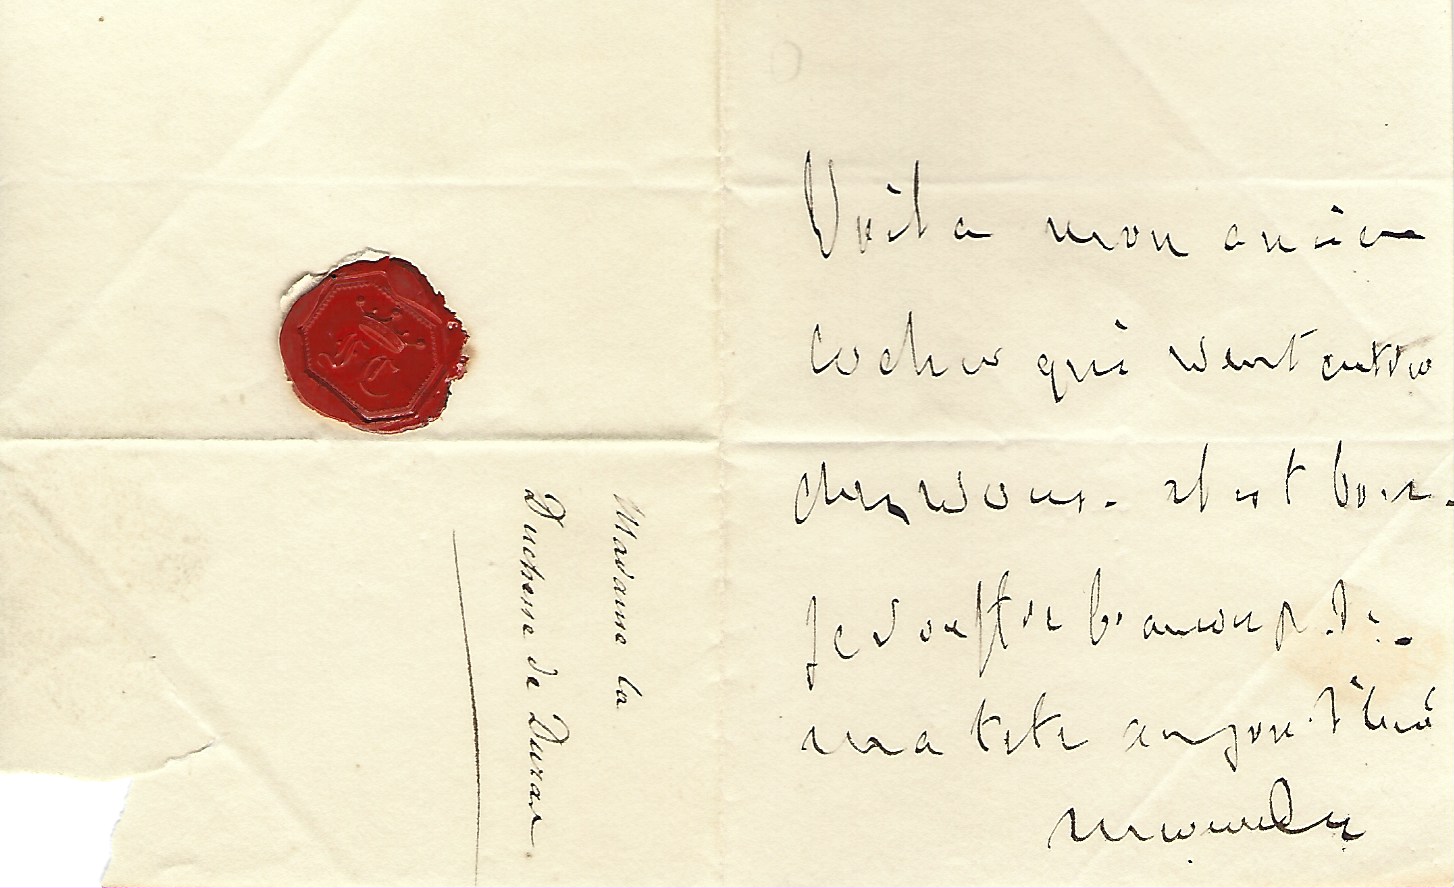 Madame la
Duchesse de Duras
Voila mon ancien
cocher qui veut entrer
chez vous. il est bon.
Je souffre beaucoup de
ma tete aujourd'hui
mercredi